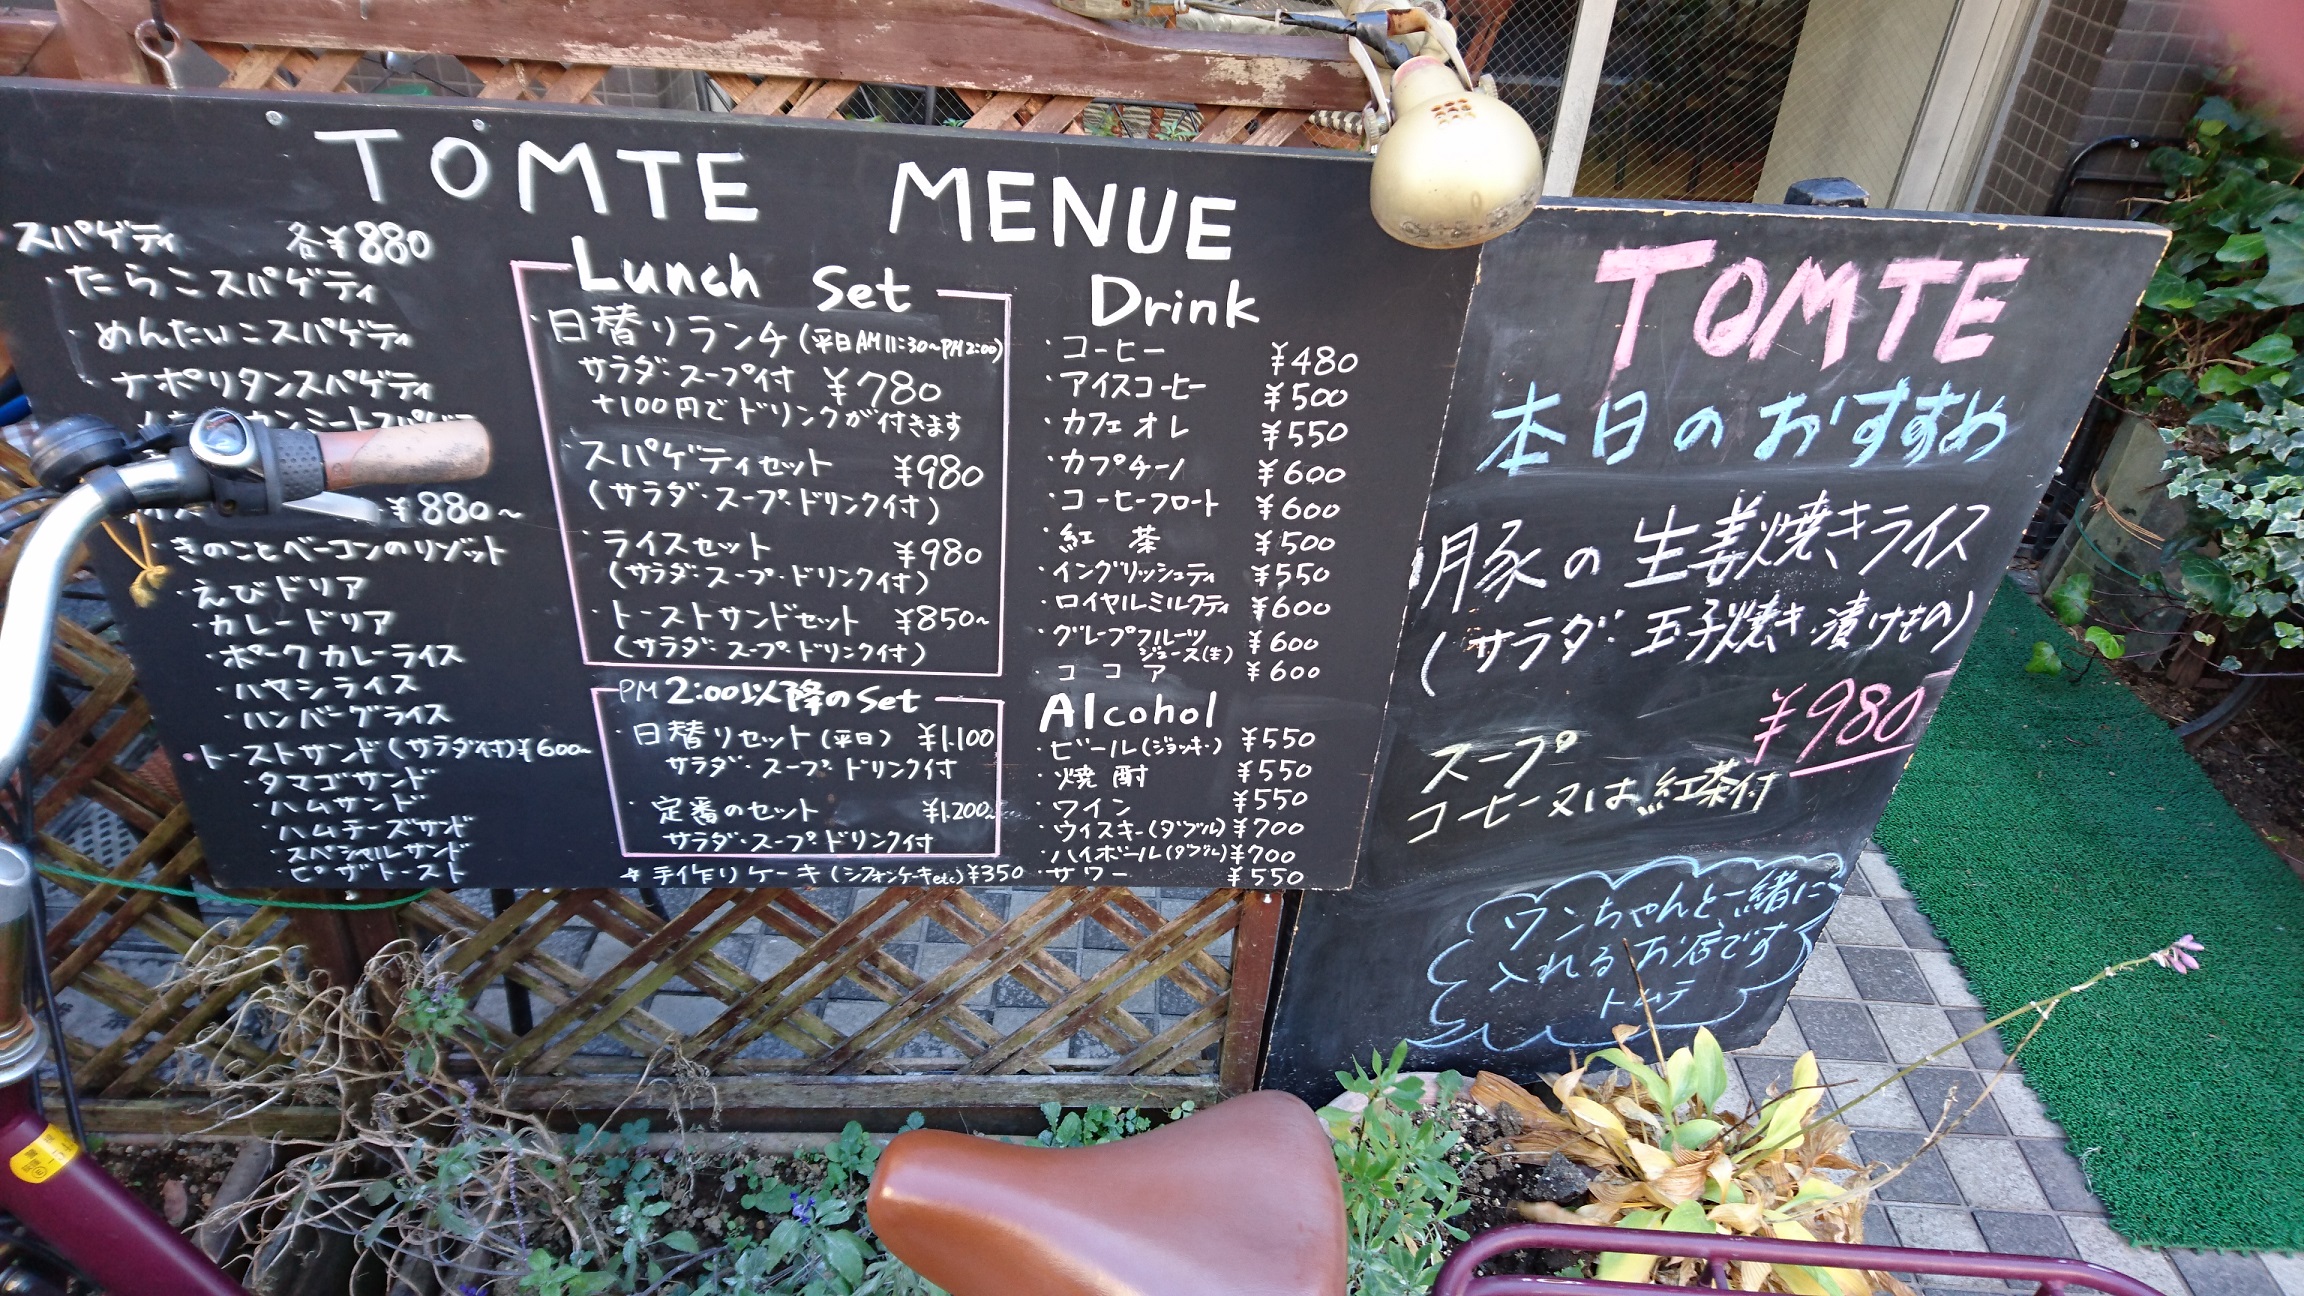 TOMTE MENUE
スパゲティ 各¥880
・たらこスパゲティ
・めんたいこスパゲティ
ナポリタンスパゲティ
¥880～
・きのことベーコンのリゾット
・えびドリア
・カレードリア
・ポークカレーライス
・ハヤシライス
・ハンバーグライス
・トーストサンド(サラダ付)¥600～
・タマゴサンド
・ハムサンド
・ハムチーズサンド
・スペシャルサンド
・ピザトースト
Lunch Set
・日替りランチ(平日AM11:30～PM2:00)
サラダ・スープ付 ¥780
+100円でドリンクが付きます
・スパゲティセット ¥980
(サラダ・スープ・ドリンク付)
・ライスセット ¥980
(サラダ・スープ・ドリンク付)
・トーストサンドセット ¥850～
(サラダ・スープ・ドリンク付)
PM 2:00以降のSet
・日替りセット(平日) ¥1.100
サラダ・スープ・ドリンク付
・定番のセット ¥1.200
サラダ・スープ・ドリンク付
手作りケーキ(シフォンケーキetc)¥350
Drink
・コーヒー ¥480
・アイスコーヒー ¥500
・カフェオレ ¥550
・カプチーノ ¥600
・コーヒーフロート ¥600
・紅茶 ¥500
・イングリッシュティ ¥550
・ロイヤルミルクティ ¥600
・グレープフルーツ
ジュース(生) ¥600
・ココア ¥600
Alcohol
・ビール(ジョッキ) ¥550
・焼酎 ¥550
・ワイン ¥550
・ウィスキー(ダブル)¥700
・ハイボール(ダブル)¥700
・サワー ¥550
TOMTE
本日のおすすめ
豚の生姜焼きライス
(サラダ・玉子焼き・漬けもの)
¥980
スープ
コーヒー又は紅茶付
ワンちゃんと一緒に
入れるお店です
トムテ